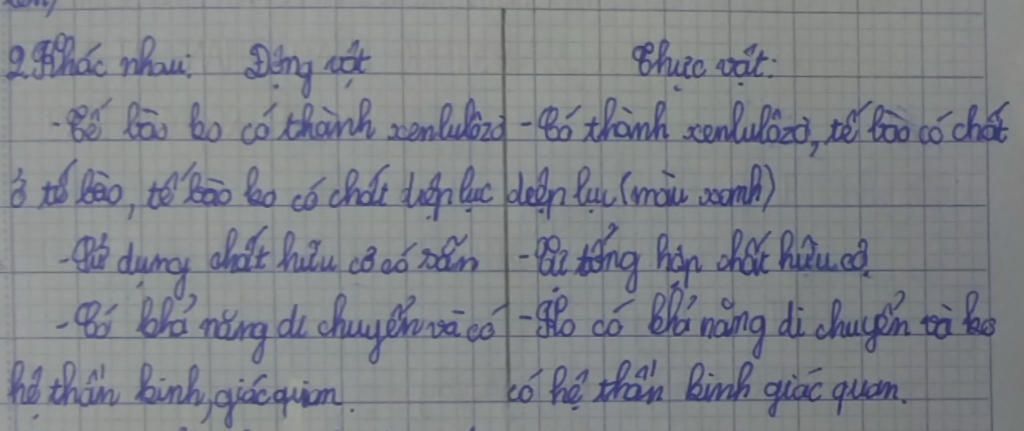 2. Khác nhau: Động vật Thực vật:
- Tế bào ko có thành xenlulôzơ - Có thành xenlulôzơ, tế bào có chất
ở tế bào, tế bào ko có chất diệp lục diệp lục (màu xanh)
- Sử dụng chất hữu cơ có sẵn - Tự tổng hợp chất hữu cơ
- Có khả năng di chuyển và có - Ko có khả năng di chuyển và ko
hệ thần kinh, giác quan. có hệ thần kinh giác quan.